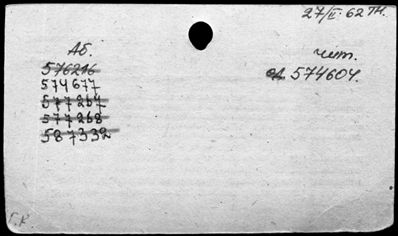 27/II-62 Тн.
Аб.
576216
574677
577267
577268
587332
чит.
574604.
Г.К.